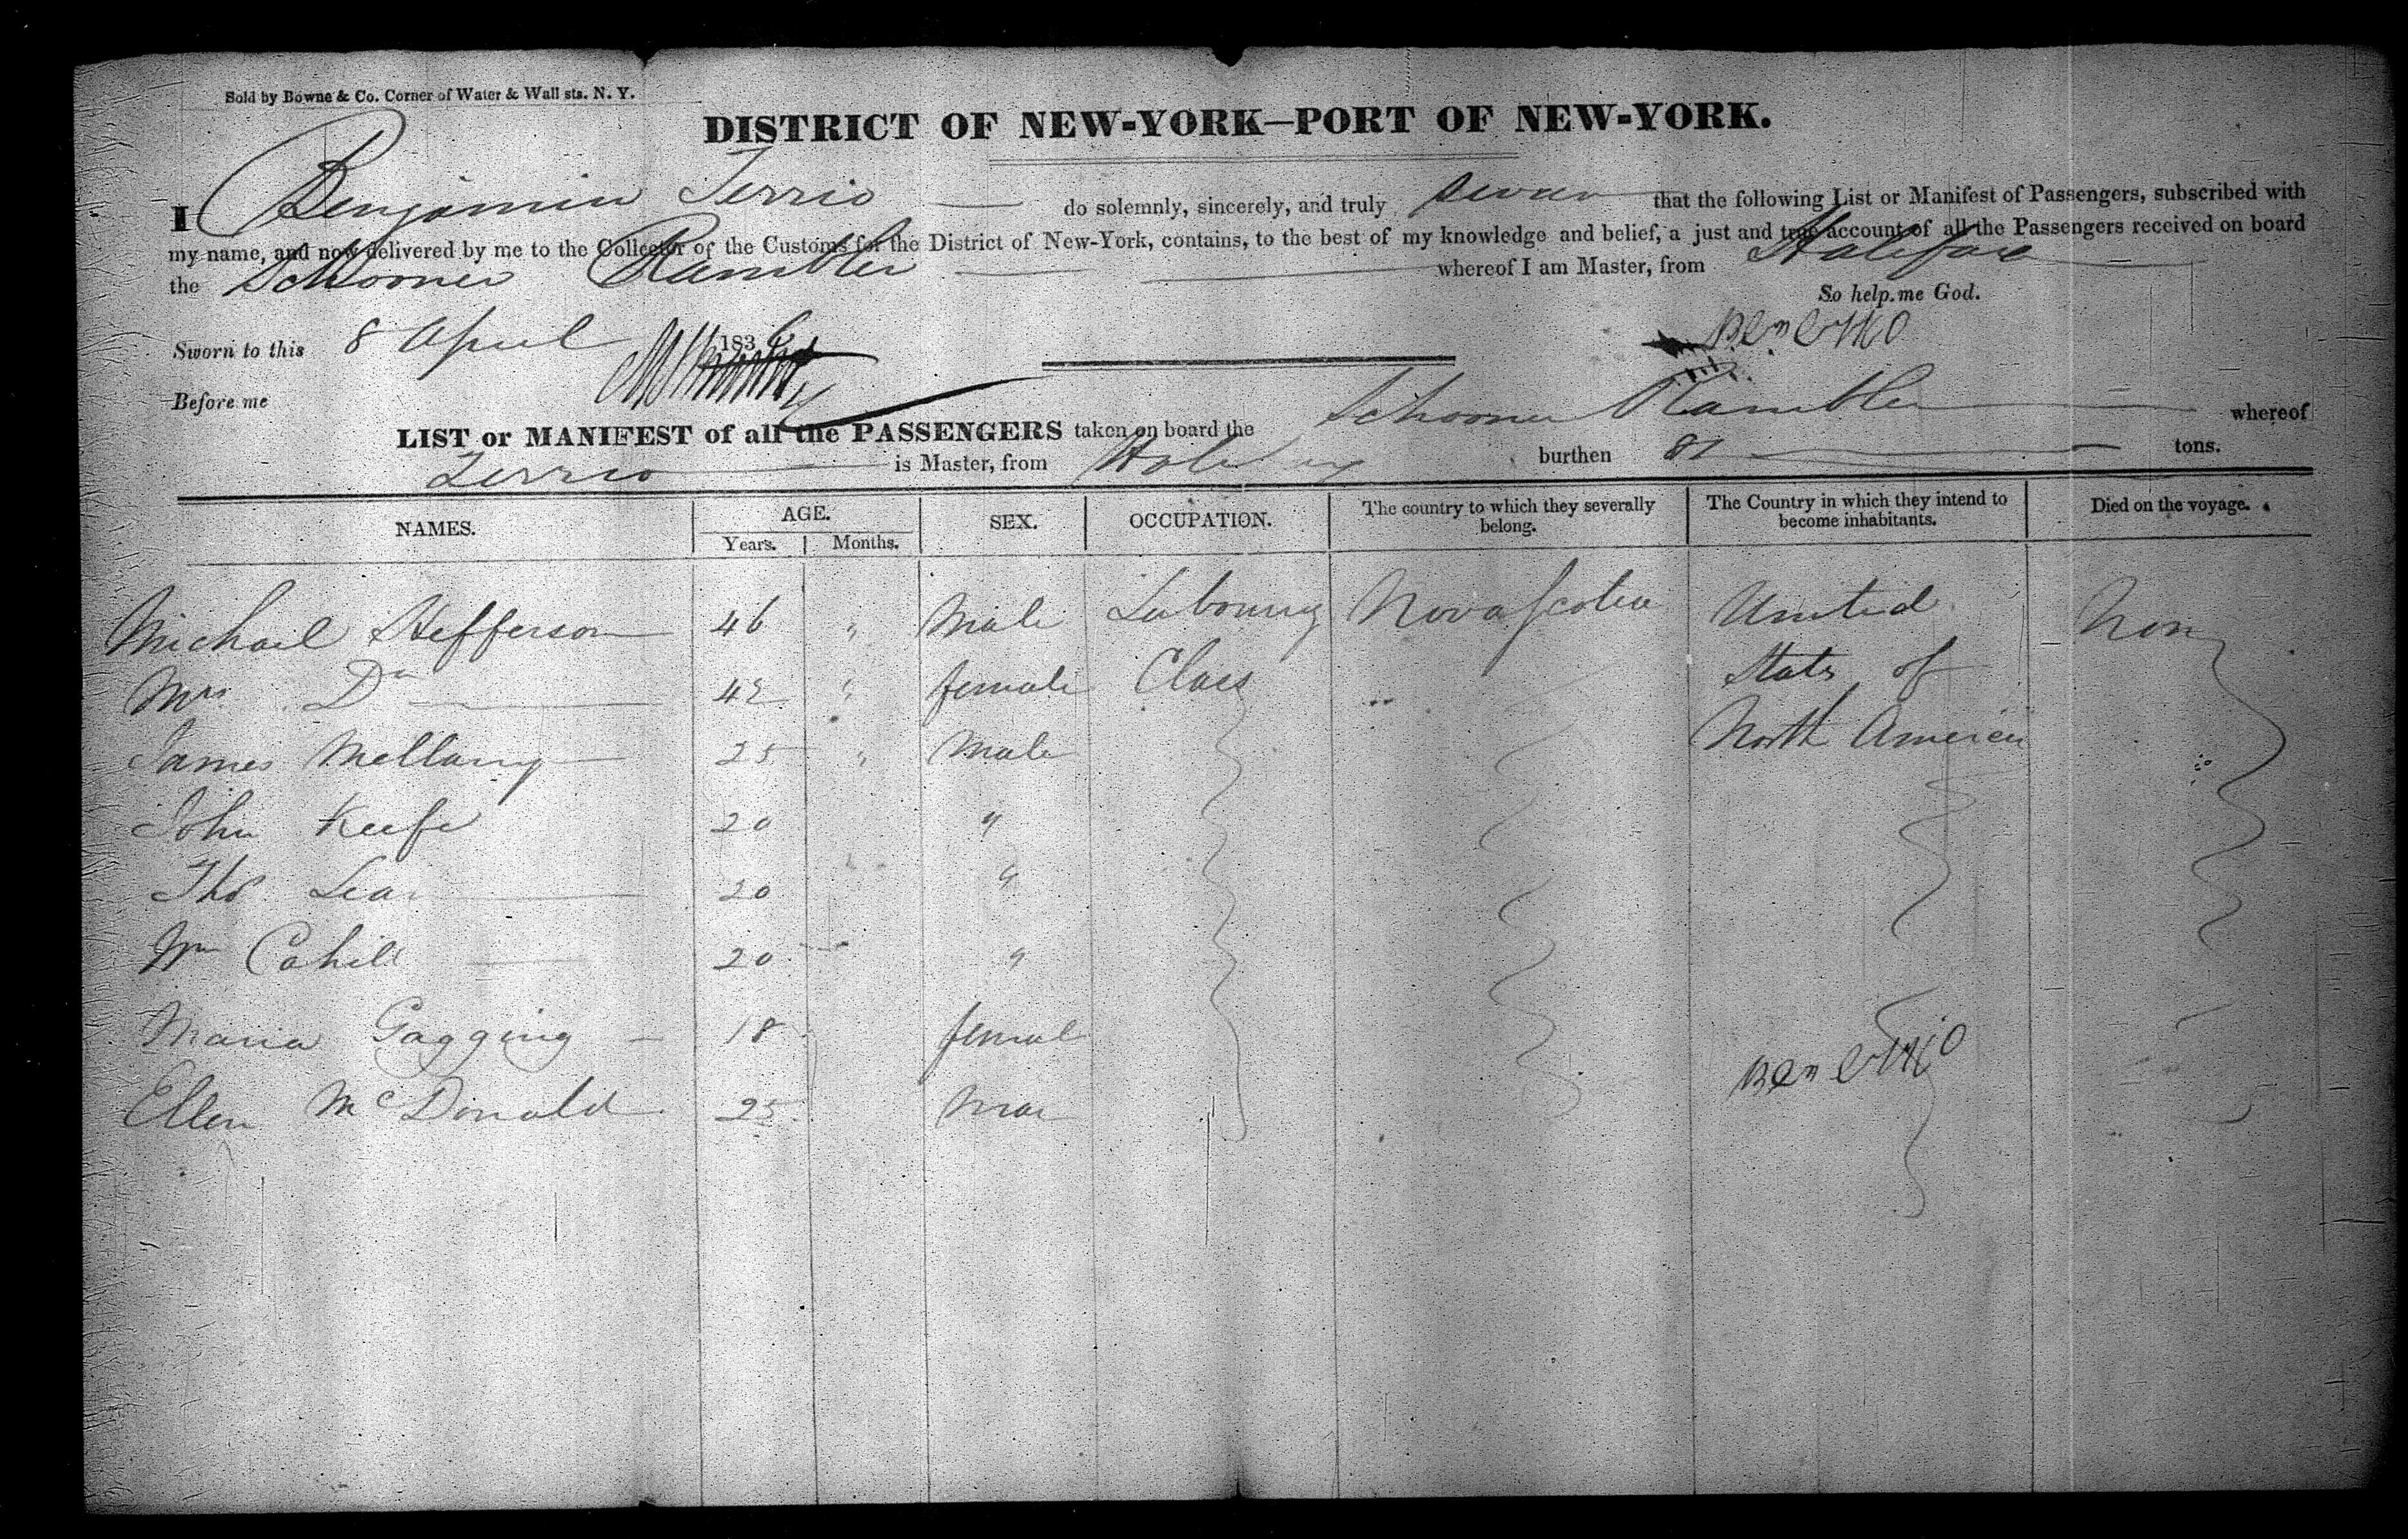 Sold by Bowne & Co. Corner of Water & Wall sts. N. Y.
DISTRICT OF NEW-YORK—PORT OF NEW-YORK.
I Benjamin Terrio do solemnly, sincerely, and truly swear that the following List or Manifest of Passengers, subscribed with
my name, and now delivered by me to the Collector of the Customs for the District of New-York, contains, to the best of my knowledge and belief, a just and true account of all the Passengers received on board
the Schooner Rambler whereof I am Master, from Halifax
So help me God.
Sworn to this 8 April 1836
Ben erio
Before me
LIST or MANIFEST of all the PASSENGERS taken on board the Schooner Rambler whereof
Terrio is Master, from burthen 87 tons.
NAMES. AGE. SEX. OCCUPATION. The country to which they severally belong. The Country in which they intend to become inhabitants. Died on the voyage.
Years. Months.
Michail Hefferson 46 " Male Labouring Nova Scotia United Non
Mrs Do 42 " female Class " States of
James 25 " Male North America
John Keefe 20 "
Thos 20 "
Wm Cahill 20 "
Maria Gagging 18 femal
Ellen McDonald 25